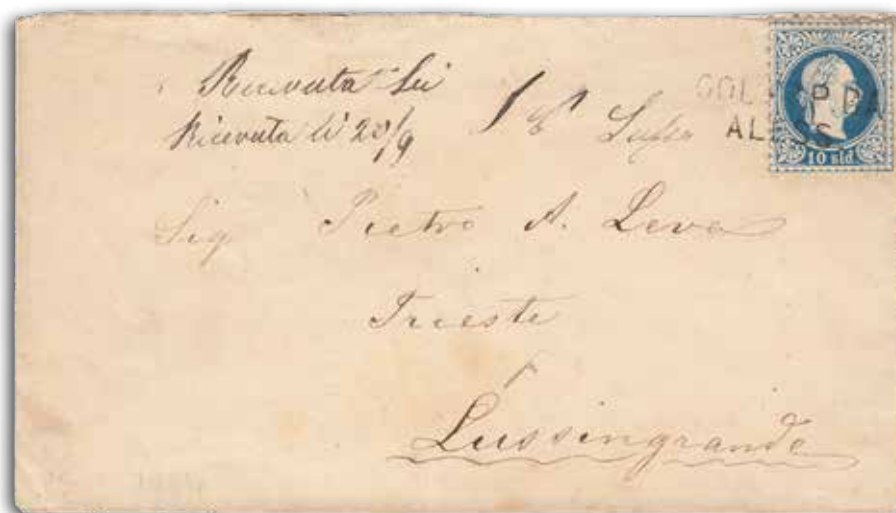 Ricevuta li
Ricevuta li 20/9
COL P. DA
ALESS
10 sld
Sig Pietro A. Leva
Trieste
Lussingrande